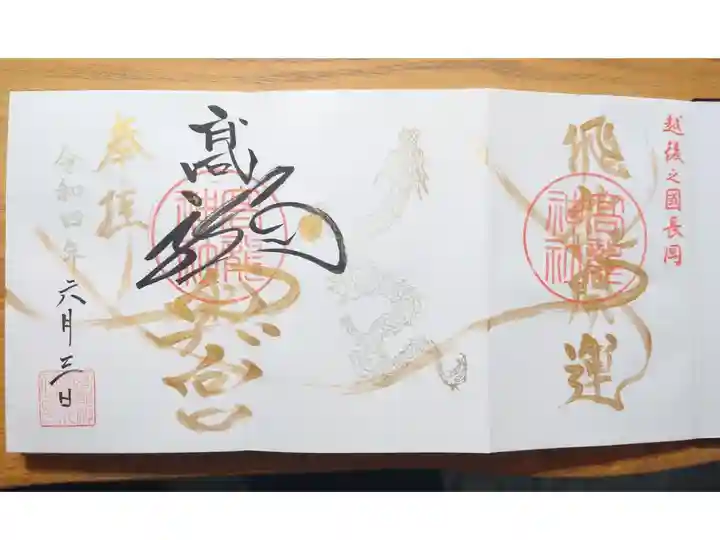 越後之國長岡
飛 運
高龍神社
高龍 宮
高龍神社
奉拝
令和四年
六月三日